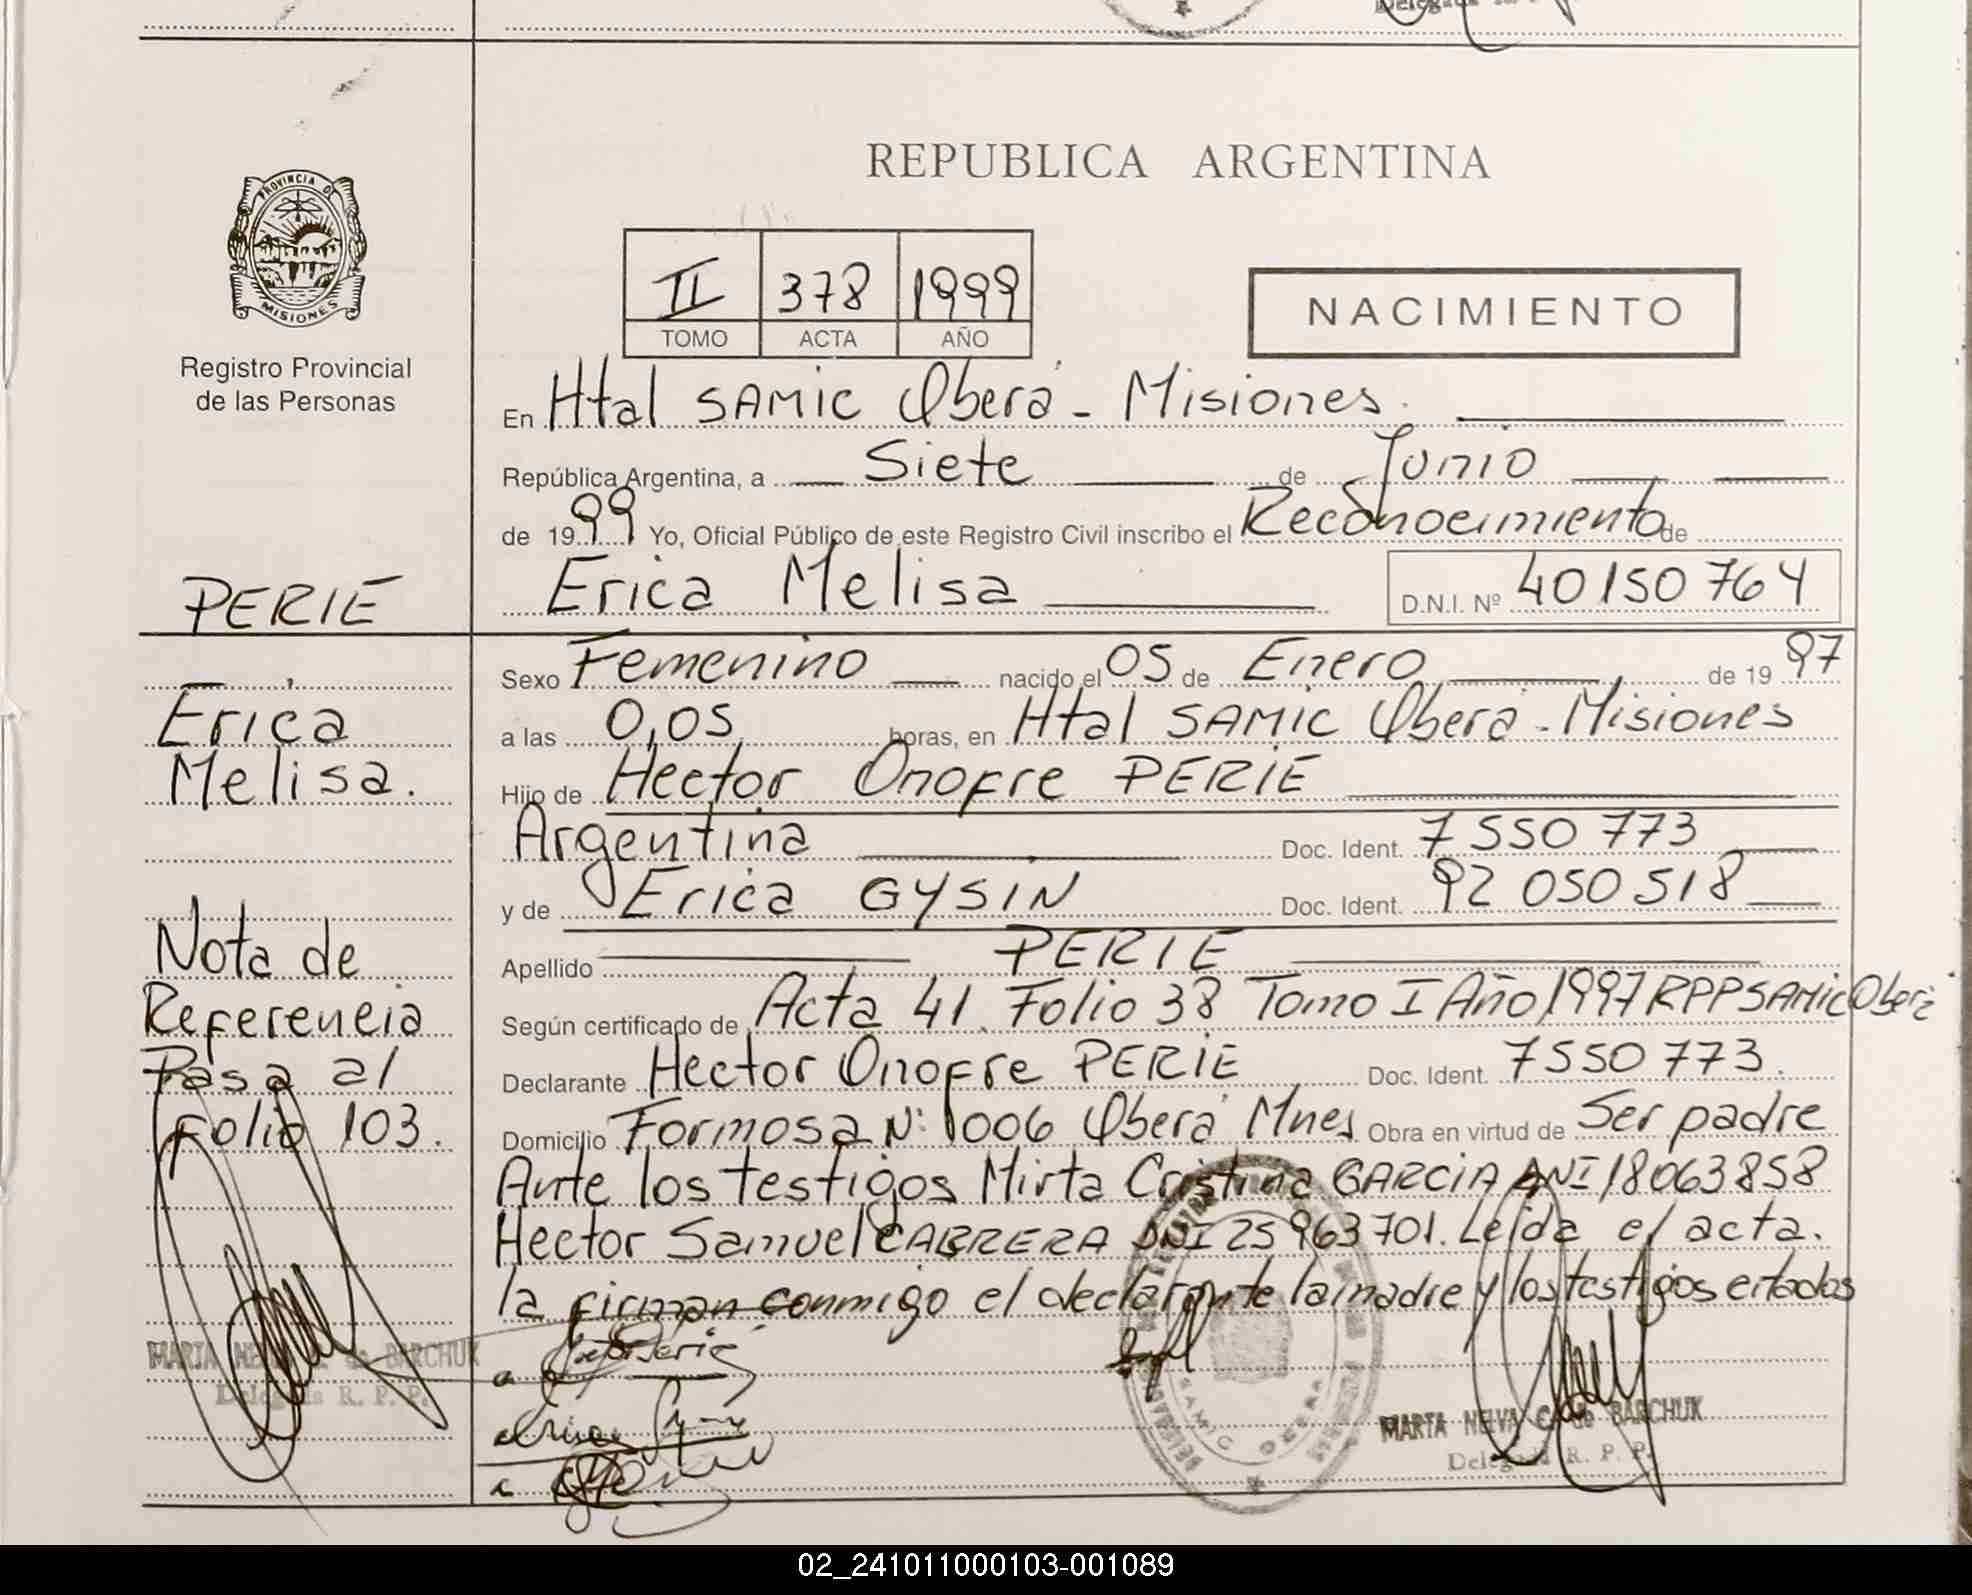 REPUBLICA ARGENTINA
PROVINCIA DE
MISIONES
Registro Provincial
de las Personas
II 378 1999
TOMO ACTA AÑO
NACIMIENTO
En Htal SAMIC Oberá - Misiones.
República Argentina, a Siete de Junio
de 1999 Yo, Oficial Público de este Registro Civil inscribo el Reconocimiento de
Erica Melisa D.N.I. Nº 40150764
PERIE
Erica
Melisa.
Nota de
Referencia
Pasa al
Folio 103.
MARTA NELVA C. de BARCHUK
Delegada R. P. P.
Sexo Femenino nacido el 05 de Enero de 1997
a las 0,05 horas, en Htal SAMIC Oberá - Misiones
Hijo de Hector Onofre PERIE
Argentina Doc. Ident. 7550773
y de Erica GYSIN Doc. Ident. 92050518
Apellido PERIE
Según certificado de Acta 41 Folio 38 Tomo I Año 1997 RPP SAMic Oberá
Declarante Hector Onofre PERIE Doc. Ident. 7550773.
Domicilio Formosa Nº 1006 Oberá Mnes Obra en virtud de Ser padre
Ante los testigos Mirta Cristina GARCIA DNI 18063858
Hector Samuel CABRERA DNI 25963701. Leida el acta.
la firman conmigo el declarante la madre y los testigos citados
SAMIC OBERA
MARTA NELVA C. de BARCHUK
Delegada R. P. P.
02_241011000103-001089